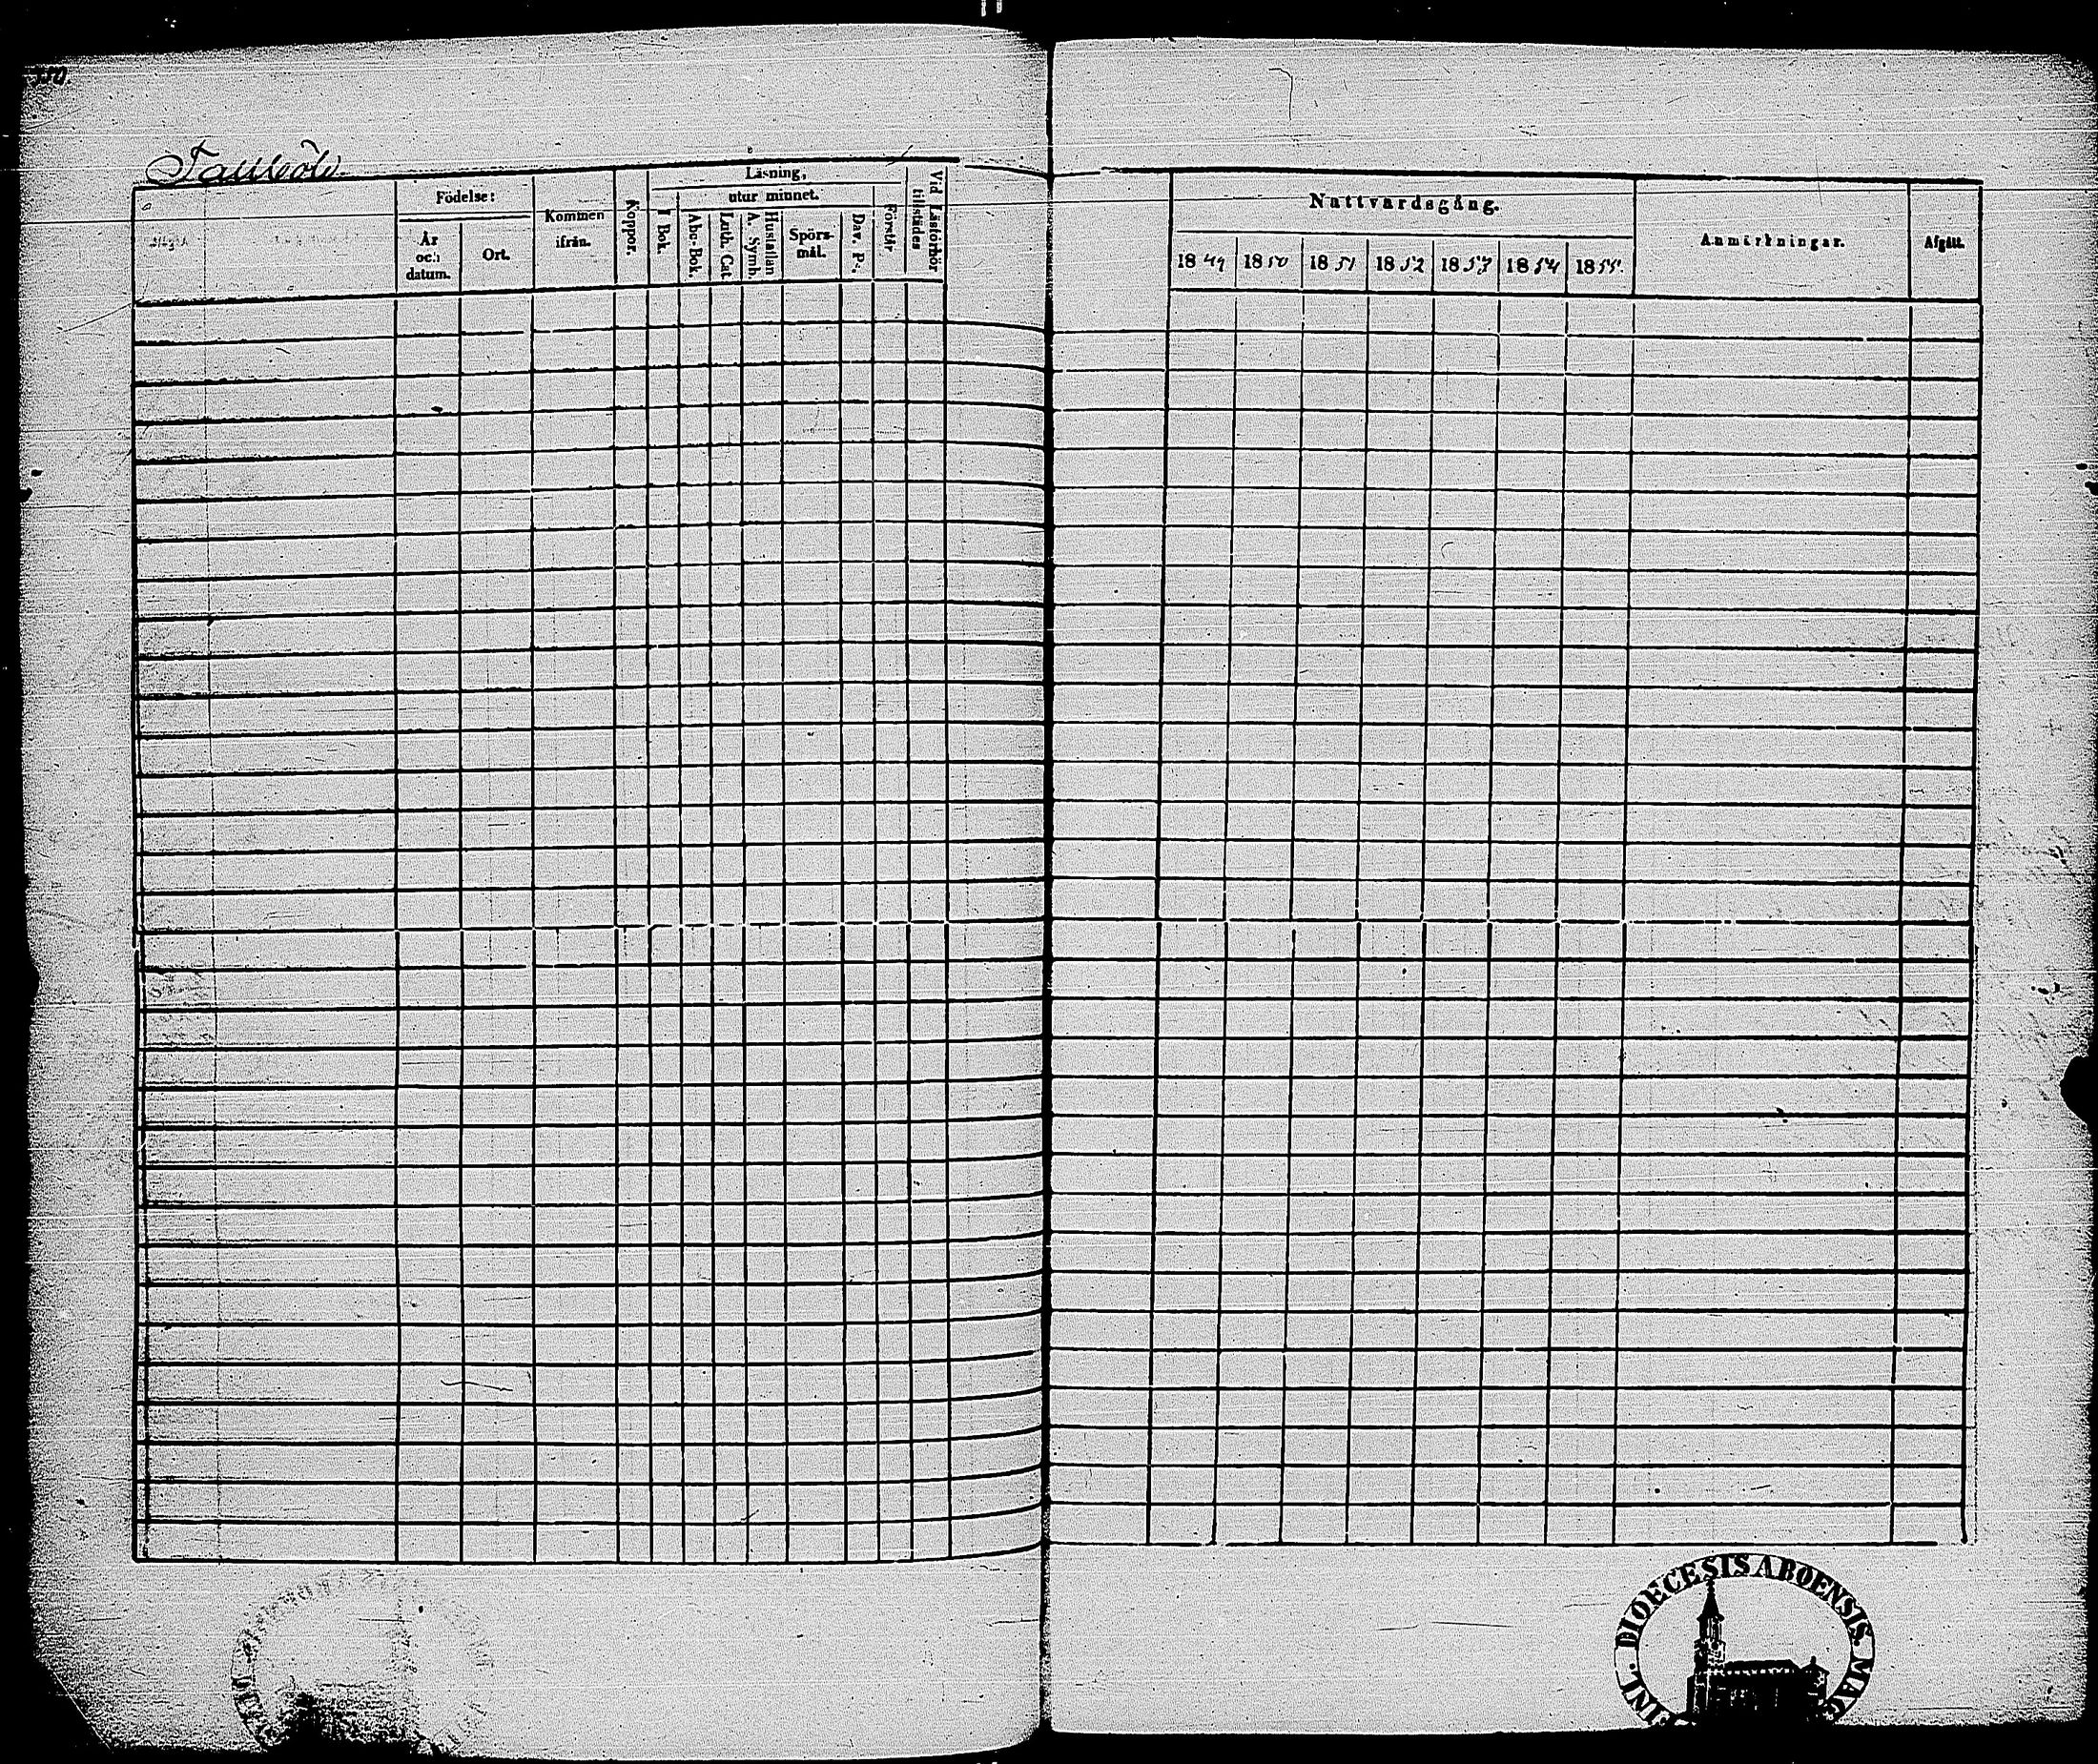 550.
Födelse:
År
och
datum.
Ort.
Kommen
ifrån.
Koppor.
Läsning,
I Bok.
utur minnet.
Abc-Bok.
Luth. Cat.
A. Symb.
Hustaflan
Spörs-
mål.
Dav. Ps.
Förstår.
Vid Läsförhör
tillstädes
Nattvardsgång.
1849
1850
1851
1852
1853
1854
1855.
Anmärkningar.
Afgått.
DIOECESIS ABOENSIS. MAG